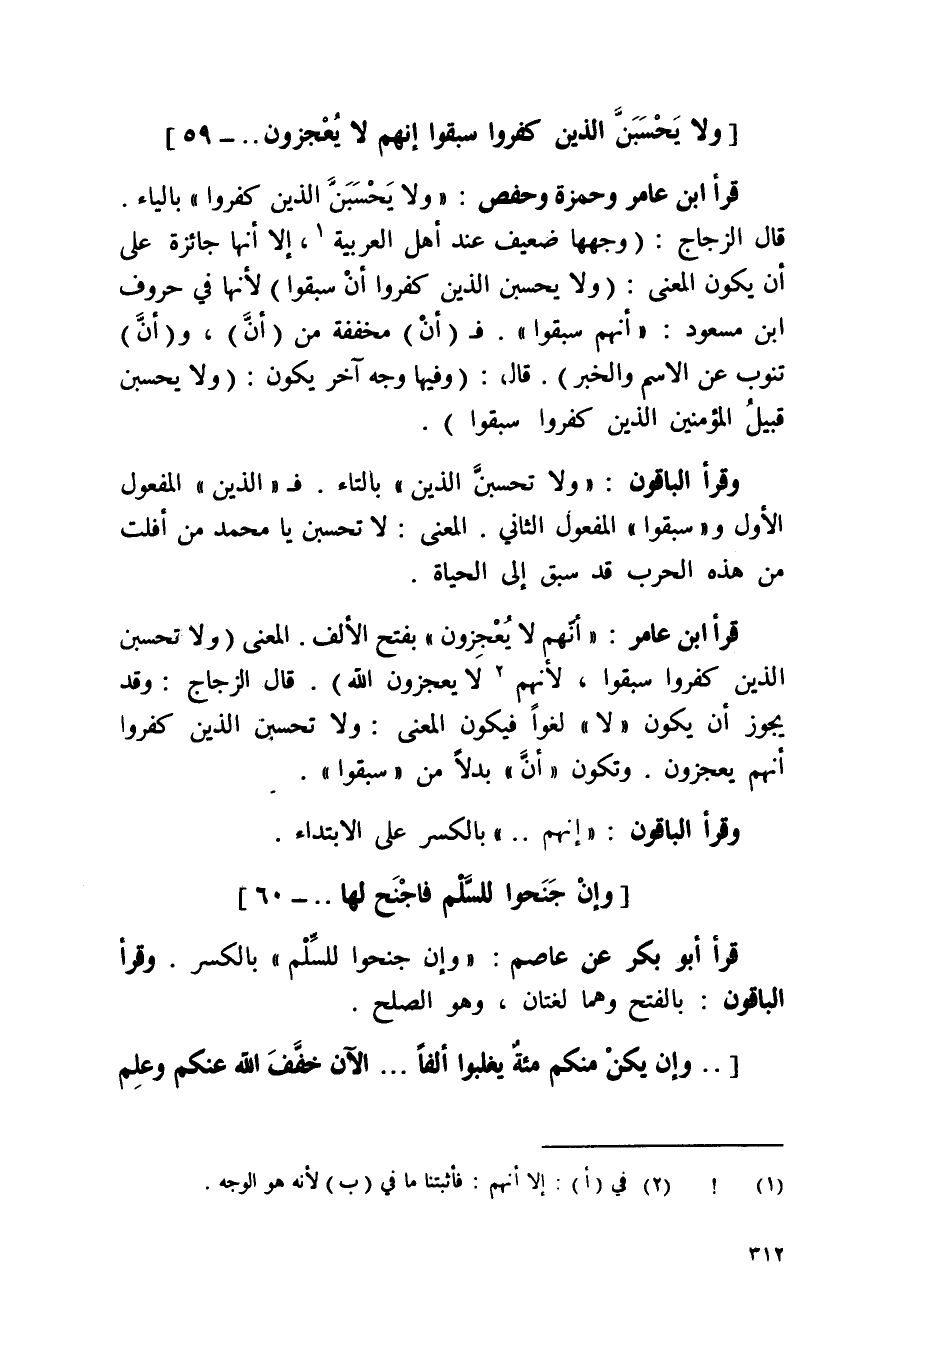 [ ولا يَحْسَبَنَّ الذين كفروا سبقوا إنهم لا يُعْجزون .. ــ ٥٩ ]
قرأ ابن عامر وحمزة وحفص : « ولا يَحْسَبَنَّ الذين كفروا » بالياء .
قال الزجاج : ( وجهها ضعيف عند أهل العربية ١ ، إلا أنها جائزة على
أن يكون المعنى : ( ولا يحسبن الذين كفروا أنْ سبقوا ) لأنها في حروف
ابن مسعود : « أنهم سبقوا » . فـ ( أنْ ) مخففة من ( أنَّ ) ، و ( أنَّ )
تنوب عن الاسم والخبر ) . قال : ( وفيها وجه آخر يكون : ( ولا يحسبن
قبيلُ المؤمنين الذين كفروا سبقوا ) .
وقرأ الباقون : « ولا تحسبنَّ الذين » بالتاء . فـ « الذين » المفعول
الأول و « سبقوا » المفعول الثاني . المعنى : لا تحسبن يا محمد من أفلت
من هذه الحرب قد سبق إلى الحياة .
قرأ ابن عامر : « أنّهم لا يُعْجِزون » بفتح الألف . المعنى ( ولا تحسبن
الذين كفروا سبقوا ، لأنهم ٢ لا يعجزون الله ) . قال الزجاج : وقد
يجوز أن يكون « لا » لغواً فيكون المعنى : ولا تحسبن الذين كفروا
أنهم يعجزون . وتكون « أنَّ » بدلاً من « سبقوا » .
وقرأ الباقون : « إنهم .. » بالكسر على الابتداء .
[ وإنْ جَنَحوا للسَّلْم فاجْنَح لها .. ــ ٦٠ ]
قرأ أبو بكر عن عاصم : « وإن جنحوا للسِّلْم » بالكسر . وقرأ
الباقون : بالفتح وهما لغتان ، وهو الصلح .
[ .. وإن يكنْ منكم مئةٌ يغلبوا ألفاً ... الآن خفَّفَ الله عنكم وعلِم
(١) ! (٢) في ( أ ) : إلا أنهم : فأثبتنا ما في ( ب ) لأنه هو الوجه .
٣١٢